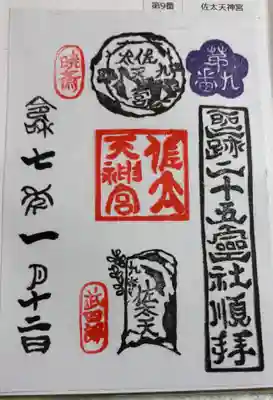 第9番 佐太天神宮
第九番
聖跡二十五霊社順拝
佐太天神宮
佐太天神宮
九番
佐太天
暁斎
武四郎
令和七年一月十二日